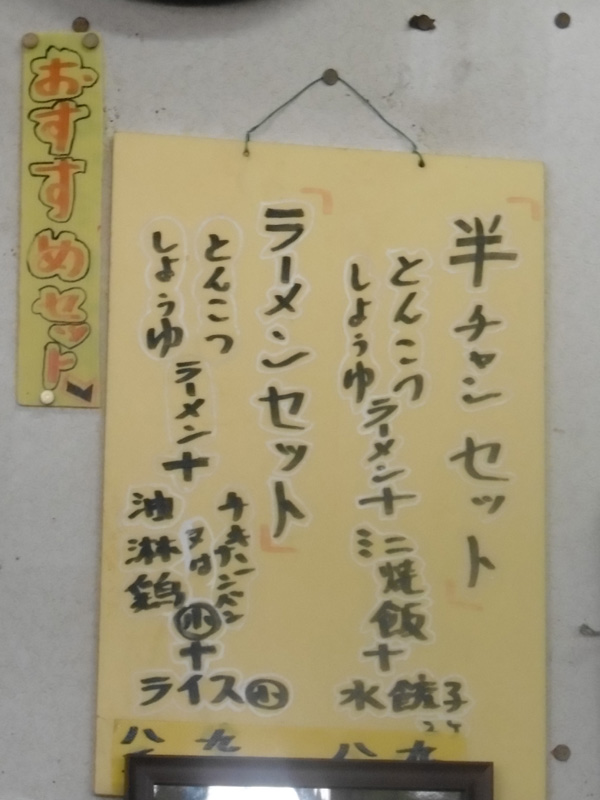 おすすめセット
「半チャンセット」
とんこつ
しょうゆ
ラーメン+
ミニ焼飯
+
水餃子
2ケ
「ラーメンセット」
とんこつ
しょうゆ
ラーメン+
チキンナンバン
又は
油淋鶏
小
+
ライス小